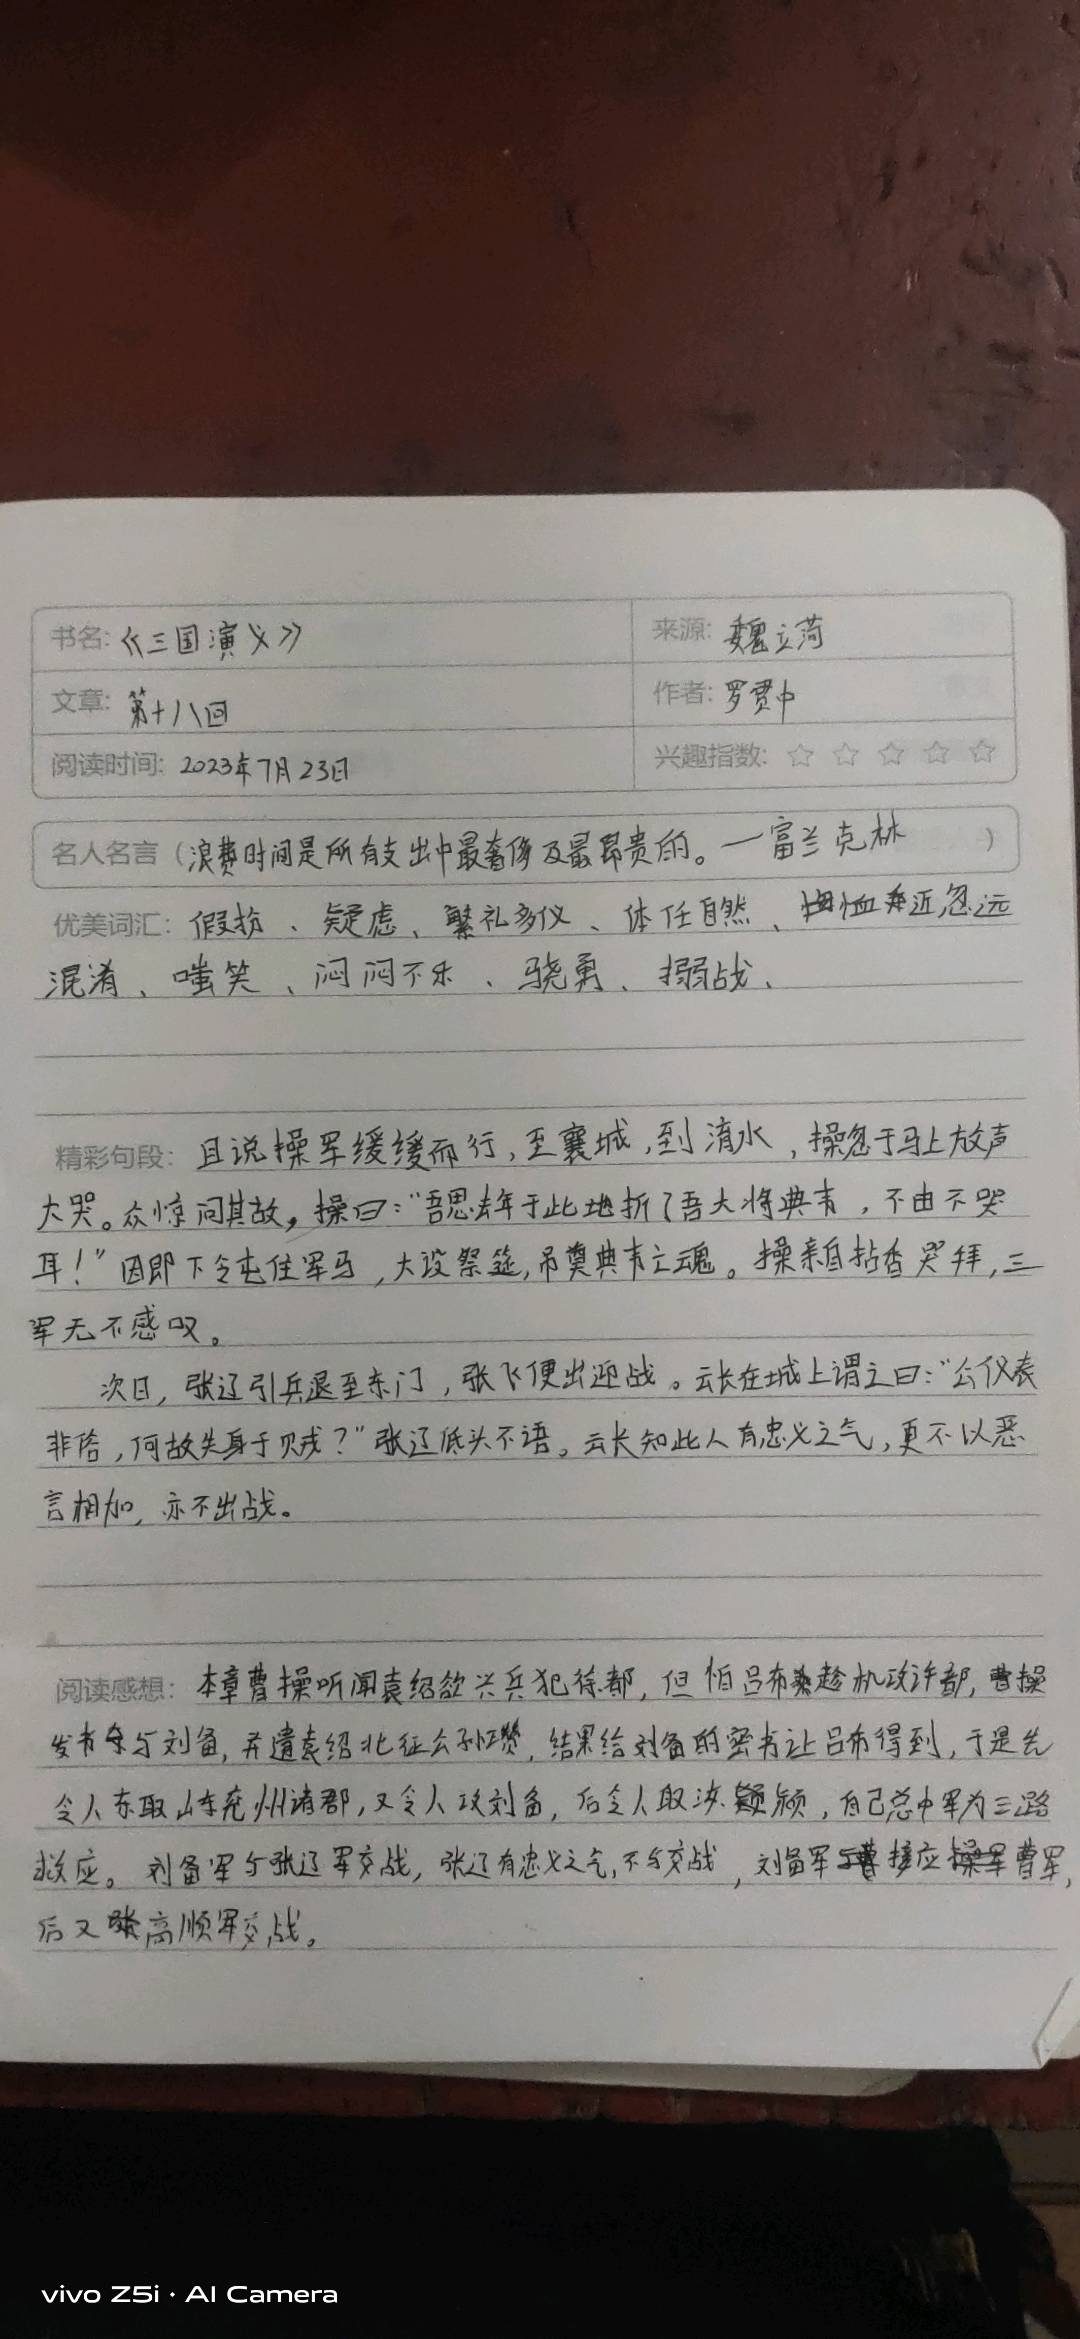 书名:《三国演义》 来源:魏立菏
文章:第十八回 作者:罗贯中
阅读时间:2023年7月23日 兴趣指数:
名人名言(浪费时间是所有支出中最奢侈及最昂贵的。一富兰克林 )
优美词汇:假扮、疑虑、繁礼多仪、体任自然、恤近忽远
混淆、嗤笑、闷闷不乐、骁勇、搦战、
精彩句段:且说操军缓缓而行,至襄城,到淯水,操忽于马上放声
大哭。众惊问其故,操曰:“吾思去年于此地折了吾大将典韦,不由不哭
耳!”因即下令屯住军马,大设祭筵,吊奠典韦亡魂。操亲自拈香哭拜,三
军无不感叹。
次日,张辽引兵退至东门,张飞便出迎战。云长在城上谓之曰:“公仪表
非俗,何故失身于贼?”张辽低头不语。云长知此人有忠义之气,更不以恶
言相加,亦不出战。
阅读感想:本章曹操听闻袁绍欲兴兵犯徐都,但怕吕布趁机攻许都,曹操
发书令与刘备,并遣袁绍北征公孙瓒,结果给刘备的密书让吕布得到,于是先
令人东取山东兖州诸郡,又令人攻刘备,后令人取汝颍,自己总中军为三路
救应。刘备军与张辽军交战,张辽有忠义之气,不与交战,刘备军接应曹军,
后又张高顺军交战。
vivo Z5i · AI Camera